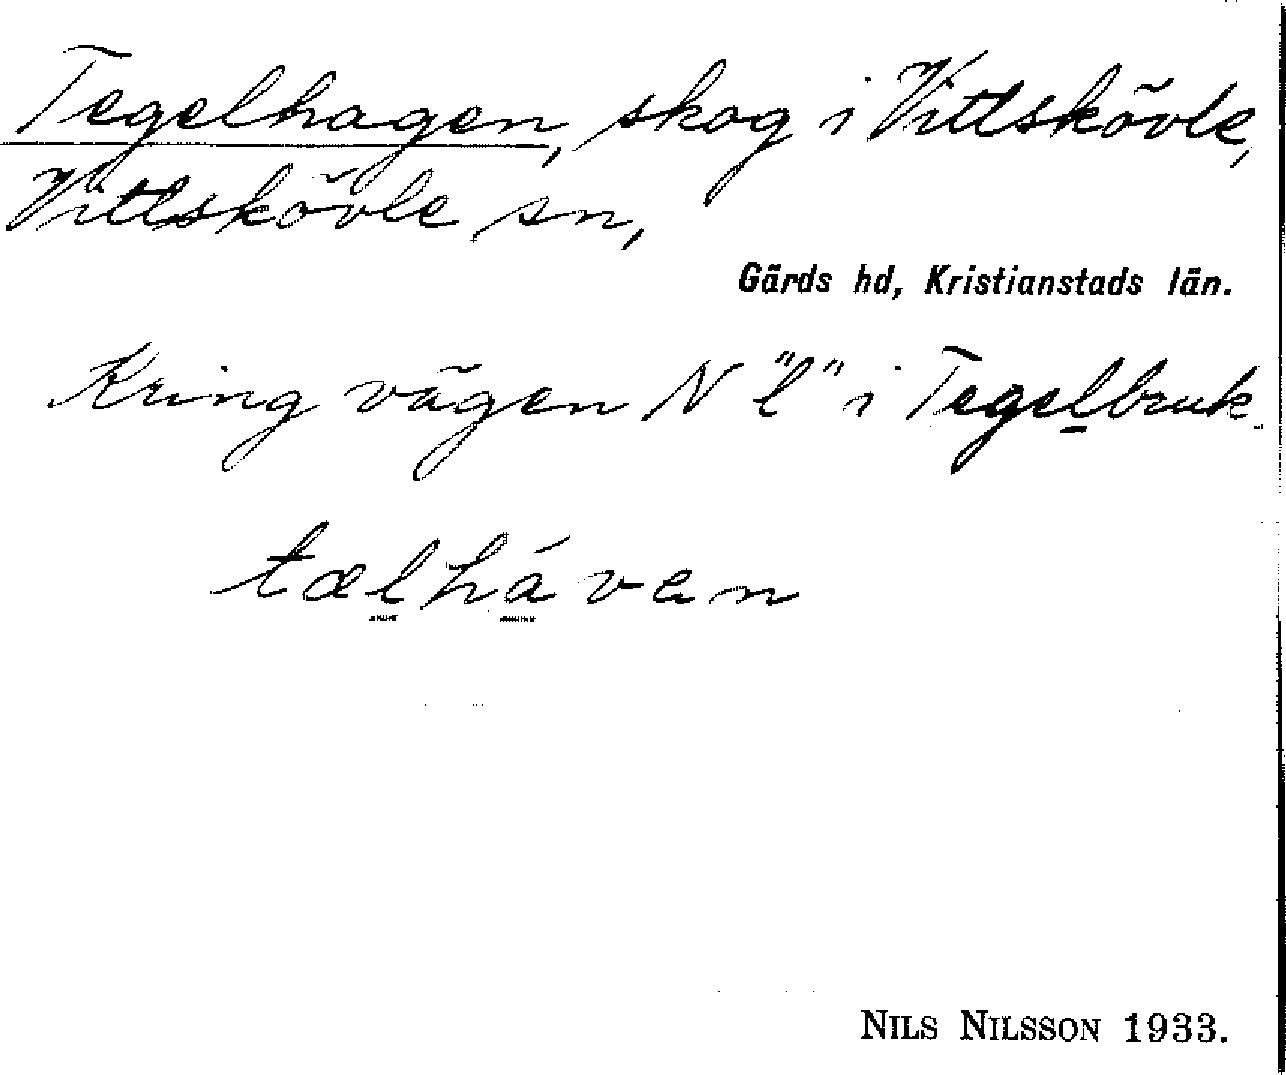 Tegelhagen, skog i Vittskövle,
Vittskövle sn,
Gärds hd, Kristianstads län.
Kring vägen N "l" i Tegelbruk.
tælháven
NILS NILSSON 1933.